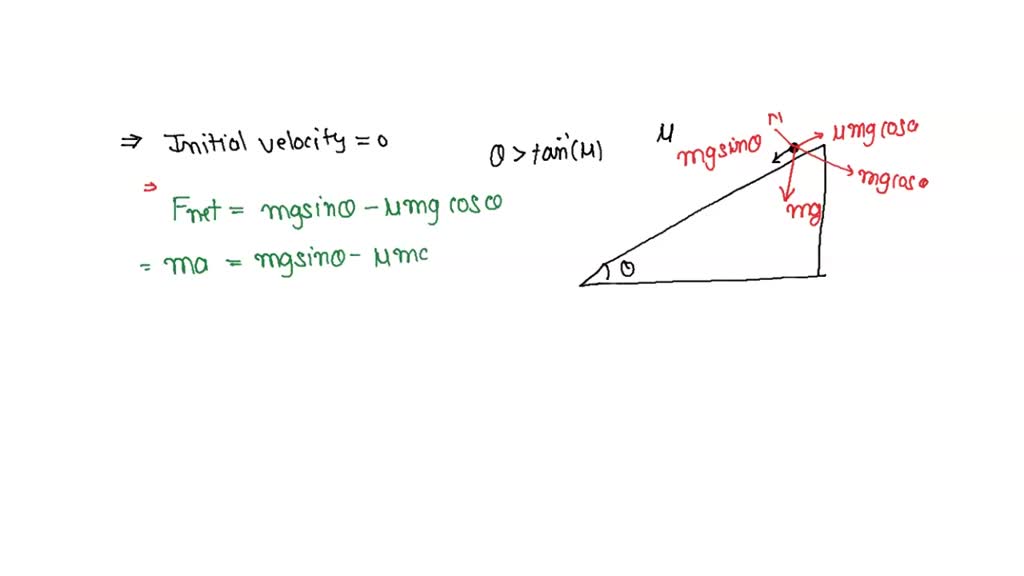 ⇒ Initial velocity = 0
θ > tan⁻¹(μ)
⇒
Fnet = mgsinθ - μmg cosθ
= ma = mgsinθ - μmc
μ
N
μmg cosθ
mgsinθ
mgcosθ
mg
θ